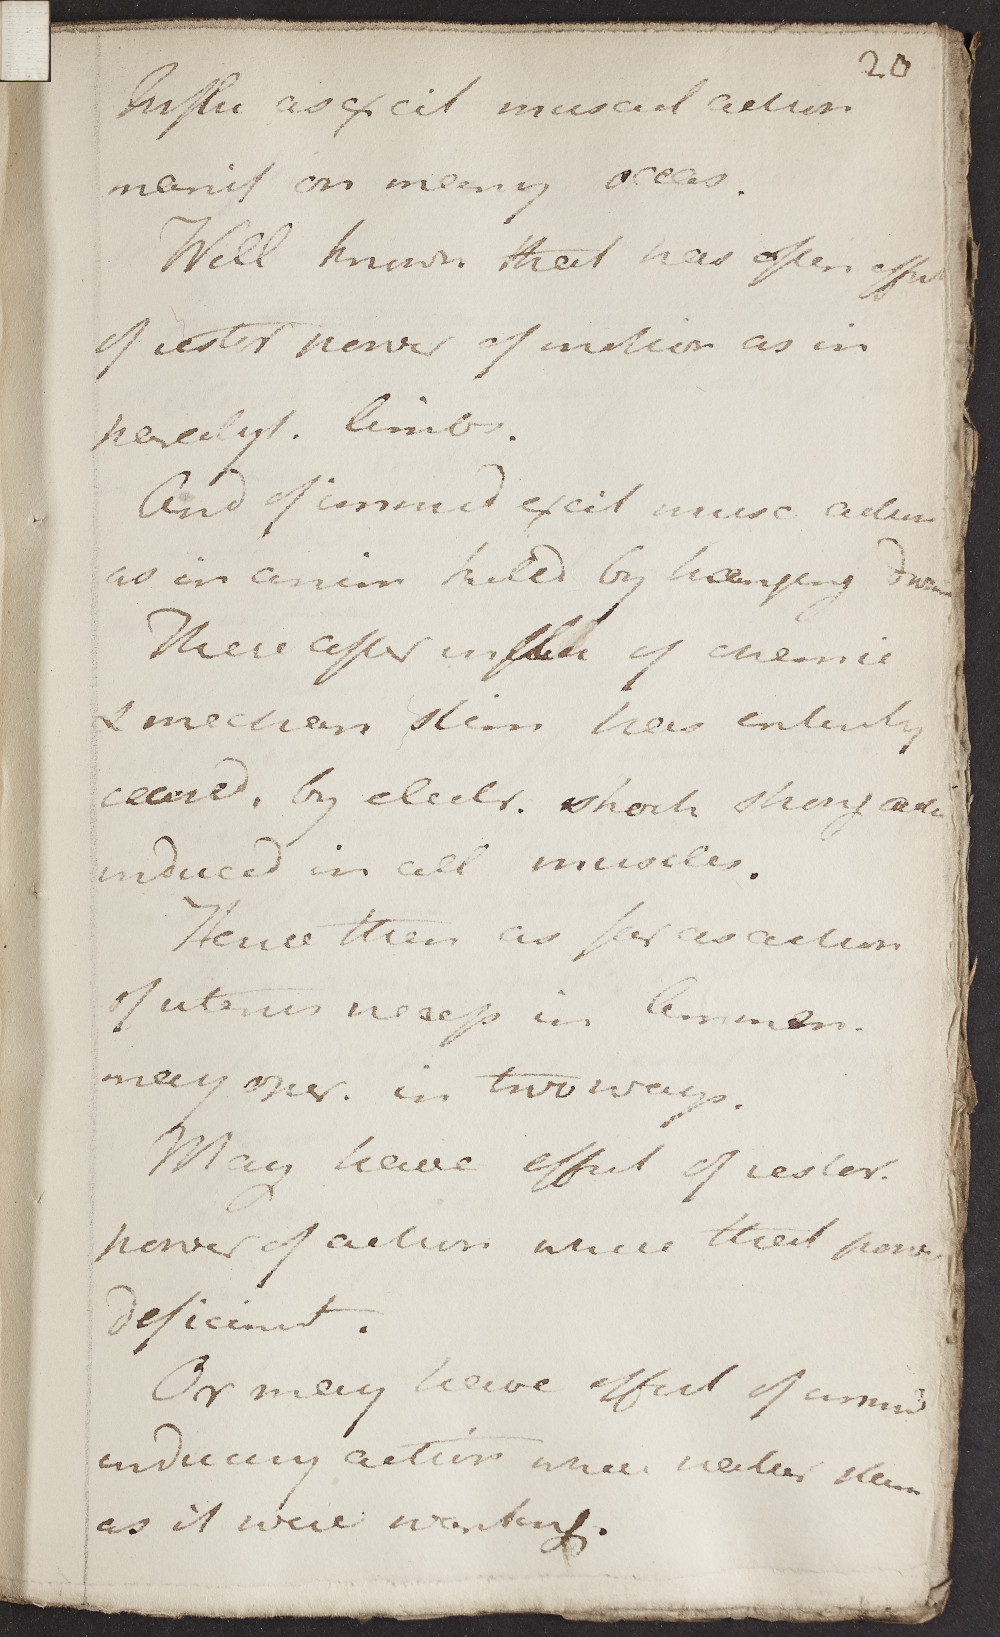 20
Influ as excit muscul action
manif on many occas.
Well known that has often effect
of restor power of motion as in
paralyt. limbs.
And of immed excit musc action
as in anim killed by hanging drown
There after influ of chemic
& mechan stim has entirely
ceased, by electr. shock strong action
induced in all muscles.
Hence then as far as action
of uterus necess in Emmen.
may oper. in two ways.
May have effect of restor.
power of action where that power
deficient.
Or may have effect of immed
inducing action where natur stim
as it were wanting.